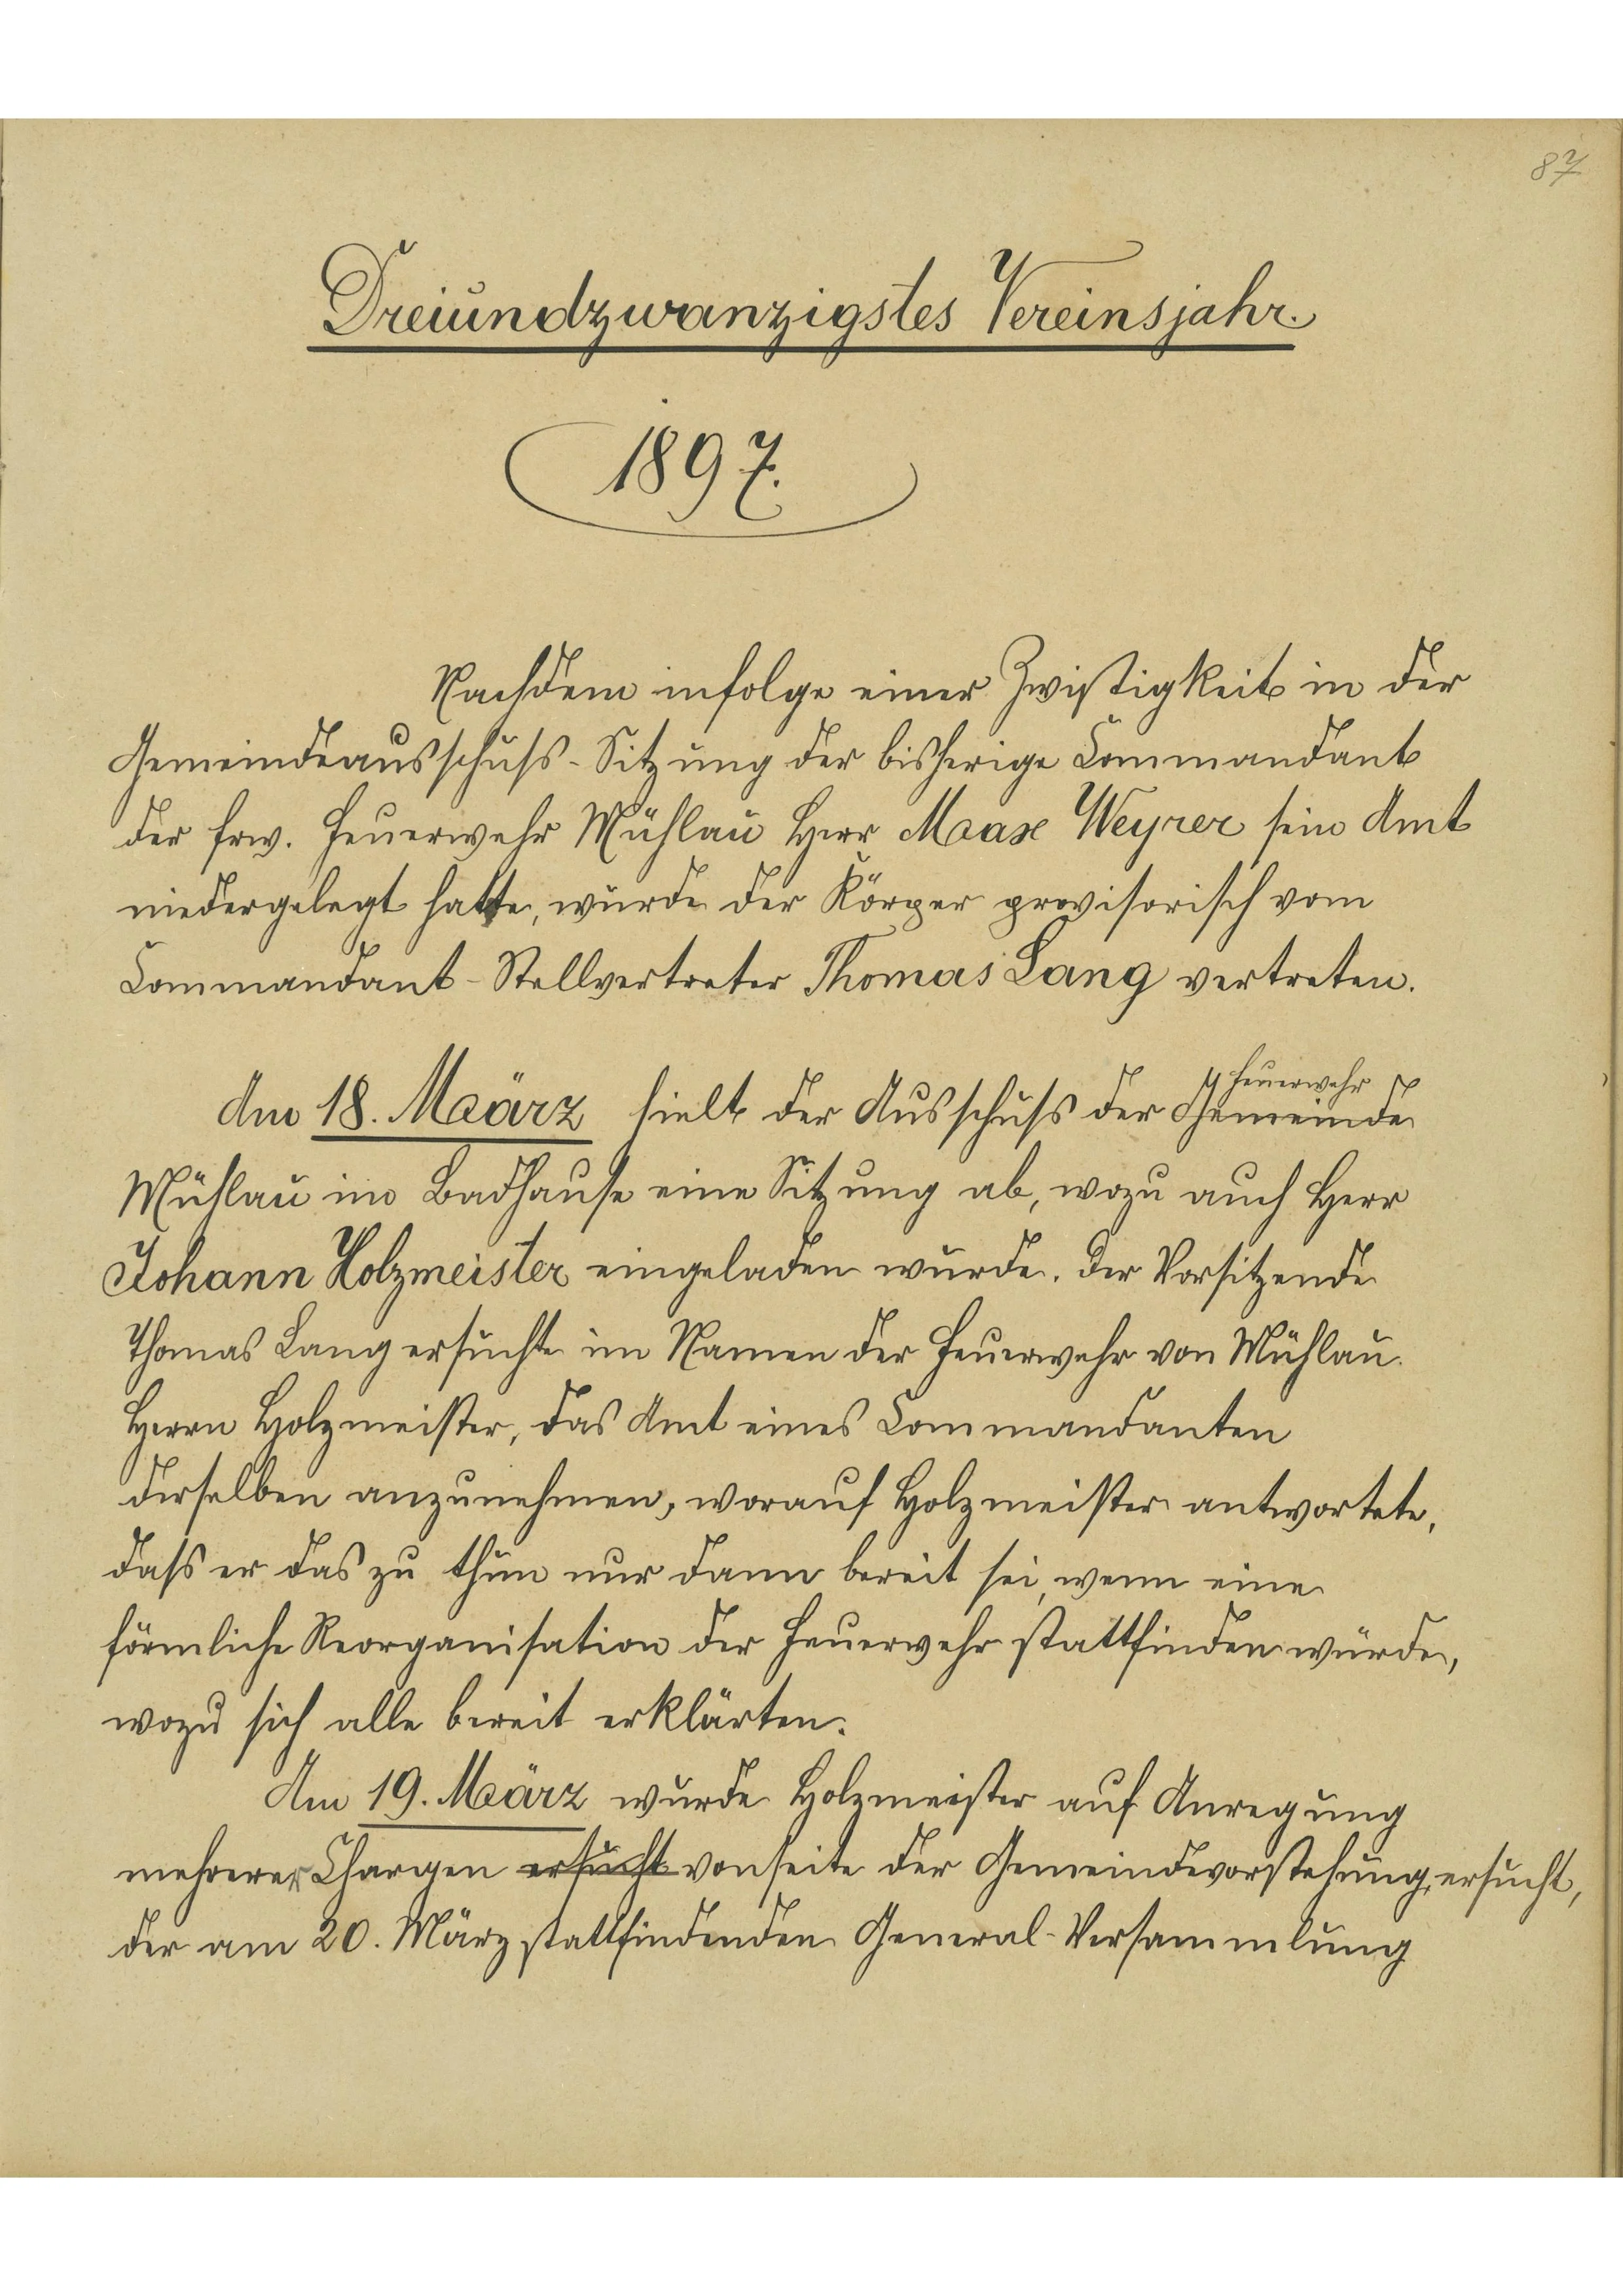 87
Dreiundzwanzigstes Vereinsjahr.
1897.
Nachdem infolge einer Zwistigkeit in der
Gemeindeausschuss-Sitzung der bisherige Commandant
der frw. Feuerwehr Mühlau Herr Max Weyrer sein Amt
niedergelegt hatte, wurde der Körper provisorisch vom
Commandant-Stellvertreter Thomas Lang vertreten.
Feuerwehr
Am 18. März hielt der Ausschuss der Gemeinde
Mühlau im Badhause eine Sitzung ab, wozu auch Herr
Johann Holzmeister eingeladen wurde. Der Vorsitzende
Thomas Lang ersuchte im Namen der Feuerwehr von Mühlau
Herrn Holzmeister, das Amt eines Commandanten
derselben anzunehmen, worauf Holzmeister antwortete,
dass er das zu thun nur dann bereit sei, wenn eine
förmliche Reorganisation der Feuerwehr stattfinden würde,
wozu sich alle bereit erklärten.
Am 19. März wurde Holzmeister auf Anregung
mehrerer Chargen ersucht vonseite der Gemeindevorstehung ersucht,
der am 20. März stattfindenden General-Versammlung